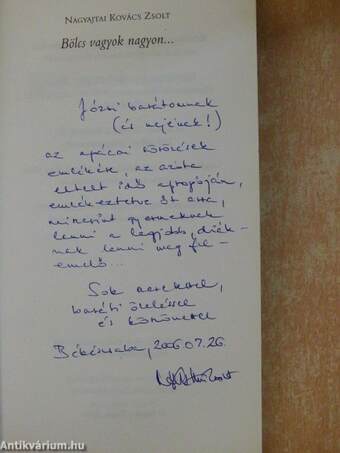 Nagyajtai Kovács Zsolt
Bölcs vagyok nagyon...
Józsi barátomnak
(és nejének!)
az apácai
emlékére, az azóta
eltelt idő apropóján,
emlékeztetve őt arra,
gyermeknek
lenni a legjobb, diák-
nak lenni meg fel-
emelő...
Sok szeretettel,
baráti öleléssel
és köszönettel
Békéscsaba, 2006.07.26.
Antikvárium.hu
antikvarium.hu